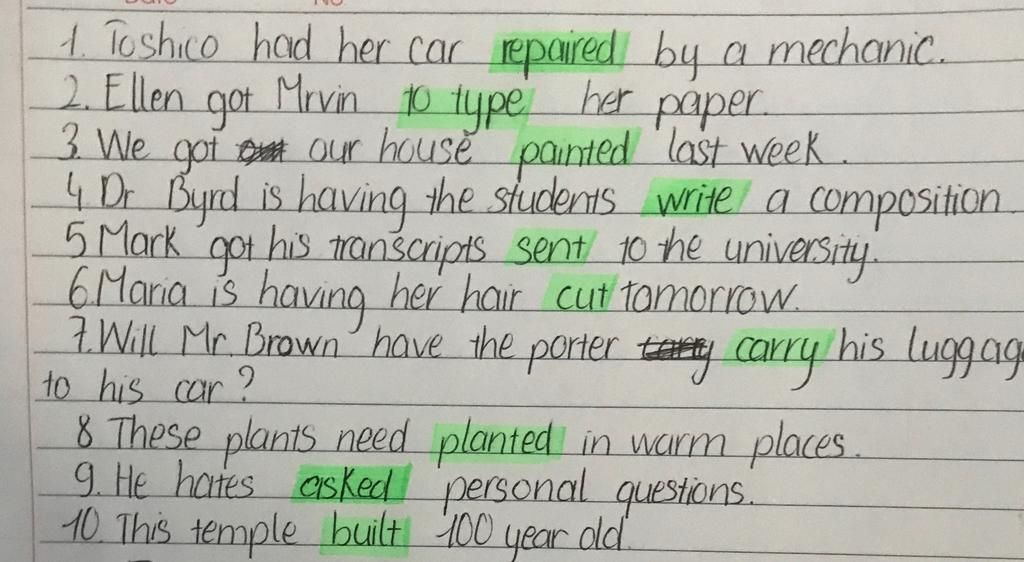 1. Toshico had her car repaired by a mechanic.
2. Ellen got Mrvin to type her paper.
3. We got our house painted last week.
4. Dr Byrd is having the students write a composition
5 Mark got his transcripts sent to the university.
6. Maria is having her hair cut tomorrow.
7. Will Mr. Brown have the porter carry his luggag
to his car?
8 These plants need planted in warm places.
9. He hates asked personal questions.
10. This temple built 100 year old.